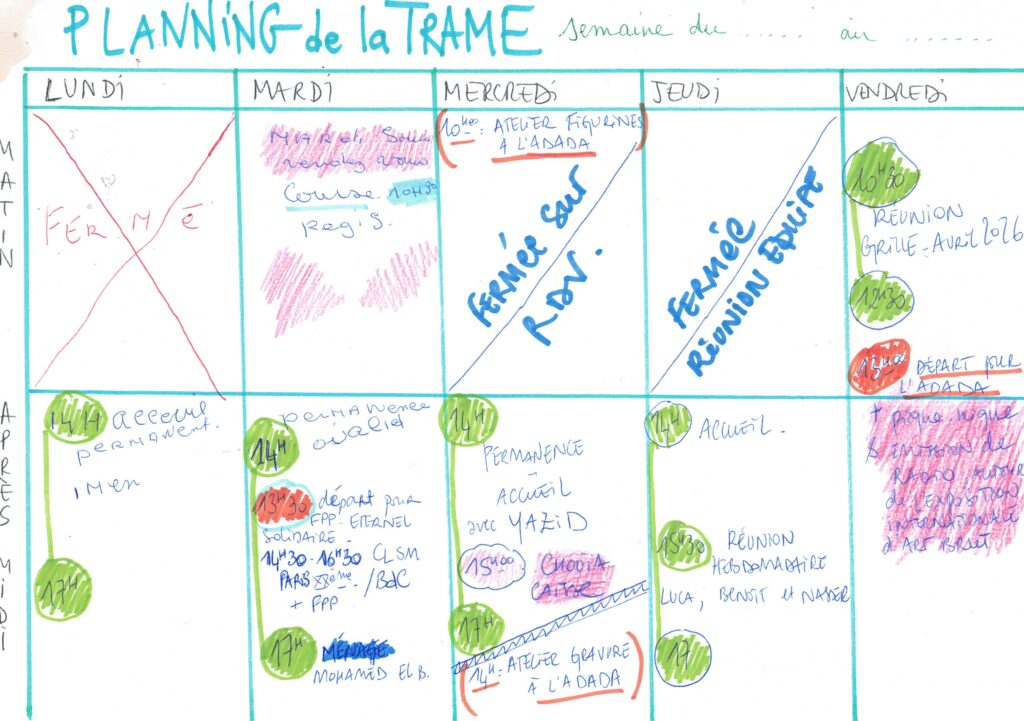 PLANNING de la TRAME
semaine du ...... au .......
LUNDI
MARDI
MERCREDI
JEUDI
VENDREDI
MATIN
FERMÉ
rendez vous
Course 10H30
Regis.
10H00 : ATELIER FIGURINES
À L'ADADA
FERMÉE SUR
RDV.
FERMÉE
RÉUNION EQUIPE
10H30
REUNION
GRILLE - AVRIL 2026
12H30
13H00 DÉPART pour
L'ADADA
APRÈS MIDI
14H acceuil
PERMANENT.
imen
17H
PERMANENCE
oualid
14H
13H30 départ pour
FPP - ETERNEL
SOLIDAIRE -
14H30 - 16H30 CLSM
PARIS XXeme /BdC
+ FPP
17H MÉNAGE
MOHAMED El B.
14H
PERMANENCE
-
ACCUEIL
avec YAZID
15H00 - CHOUIA
CAISSE
17H
14H : ATELIER GRAVURE
À L'ADADA
14H ACCUEIL.
15H30 RÉUNION
HEBDOMADAIRE
LUCA, BENOIT et NASSER
17
+ pique-nique
& EMISSION de
RADIO AUTOUR
de L'EXPOSITION
INTERNATIONALE
d'ART BRUT